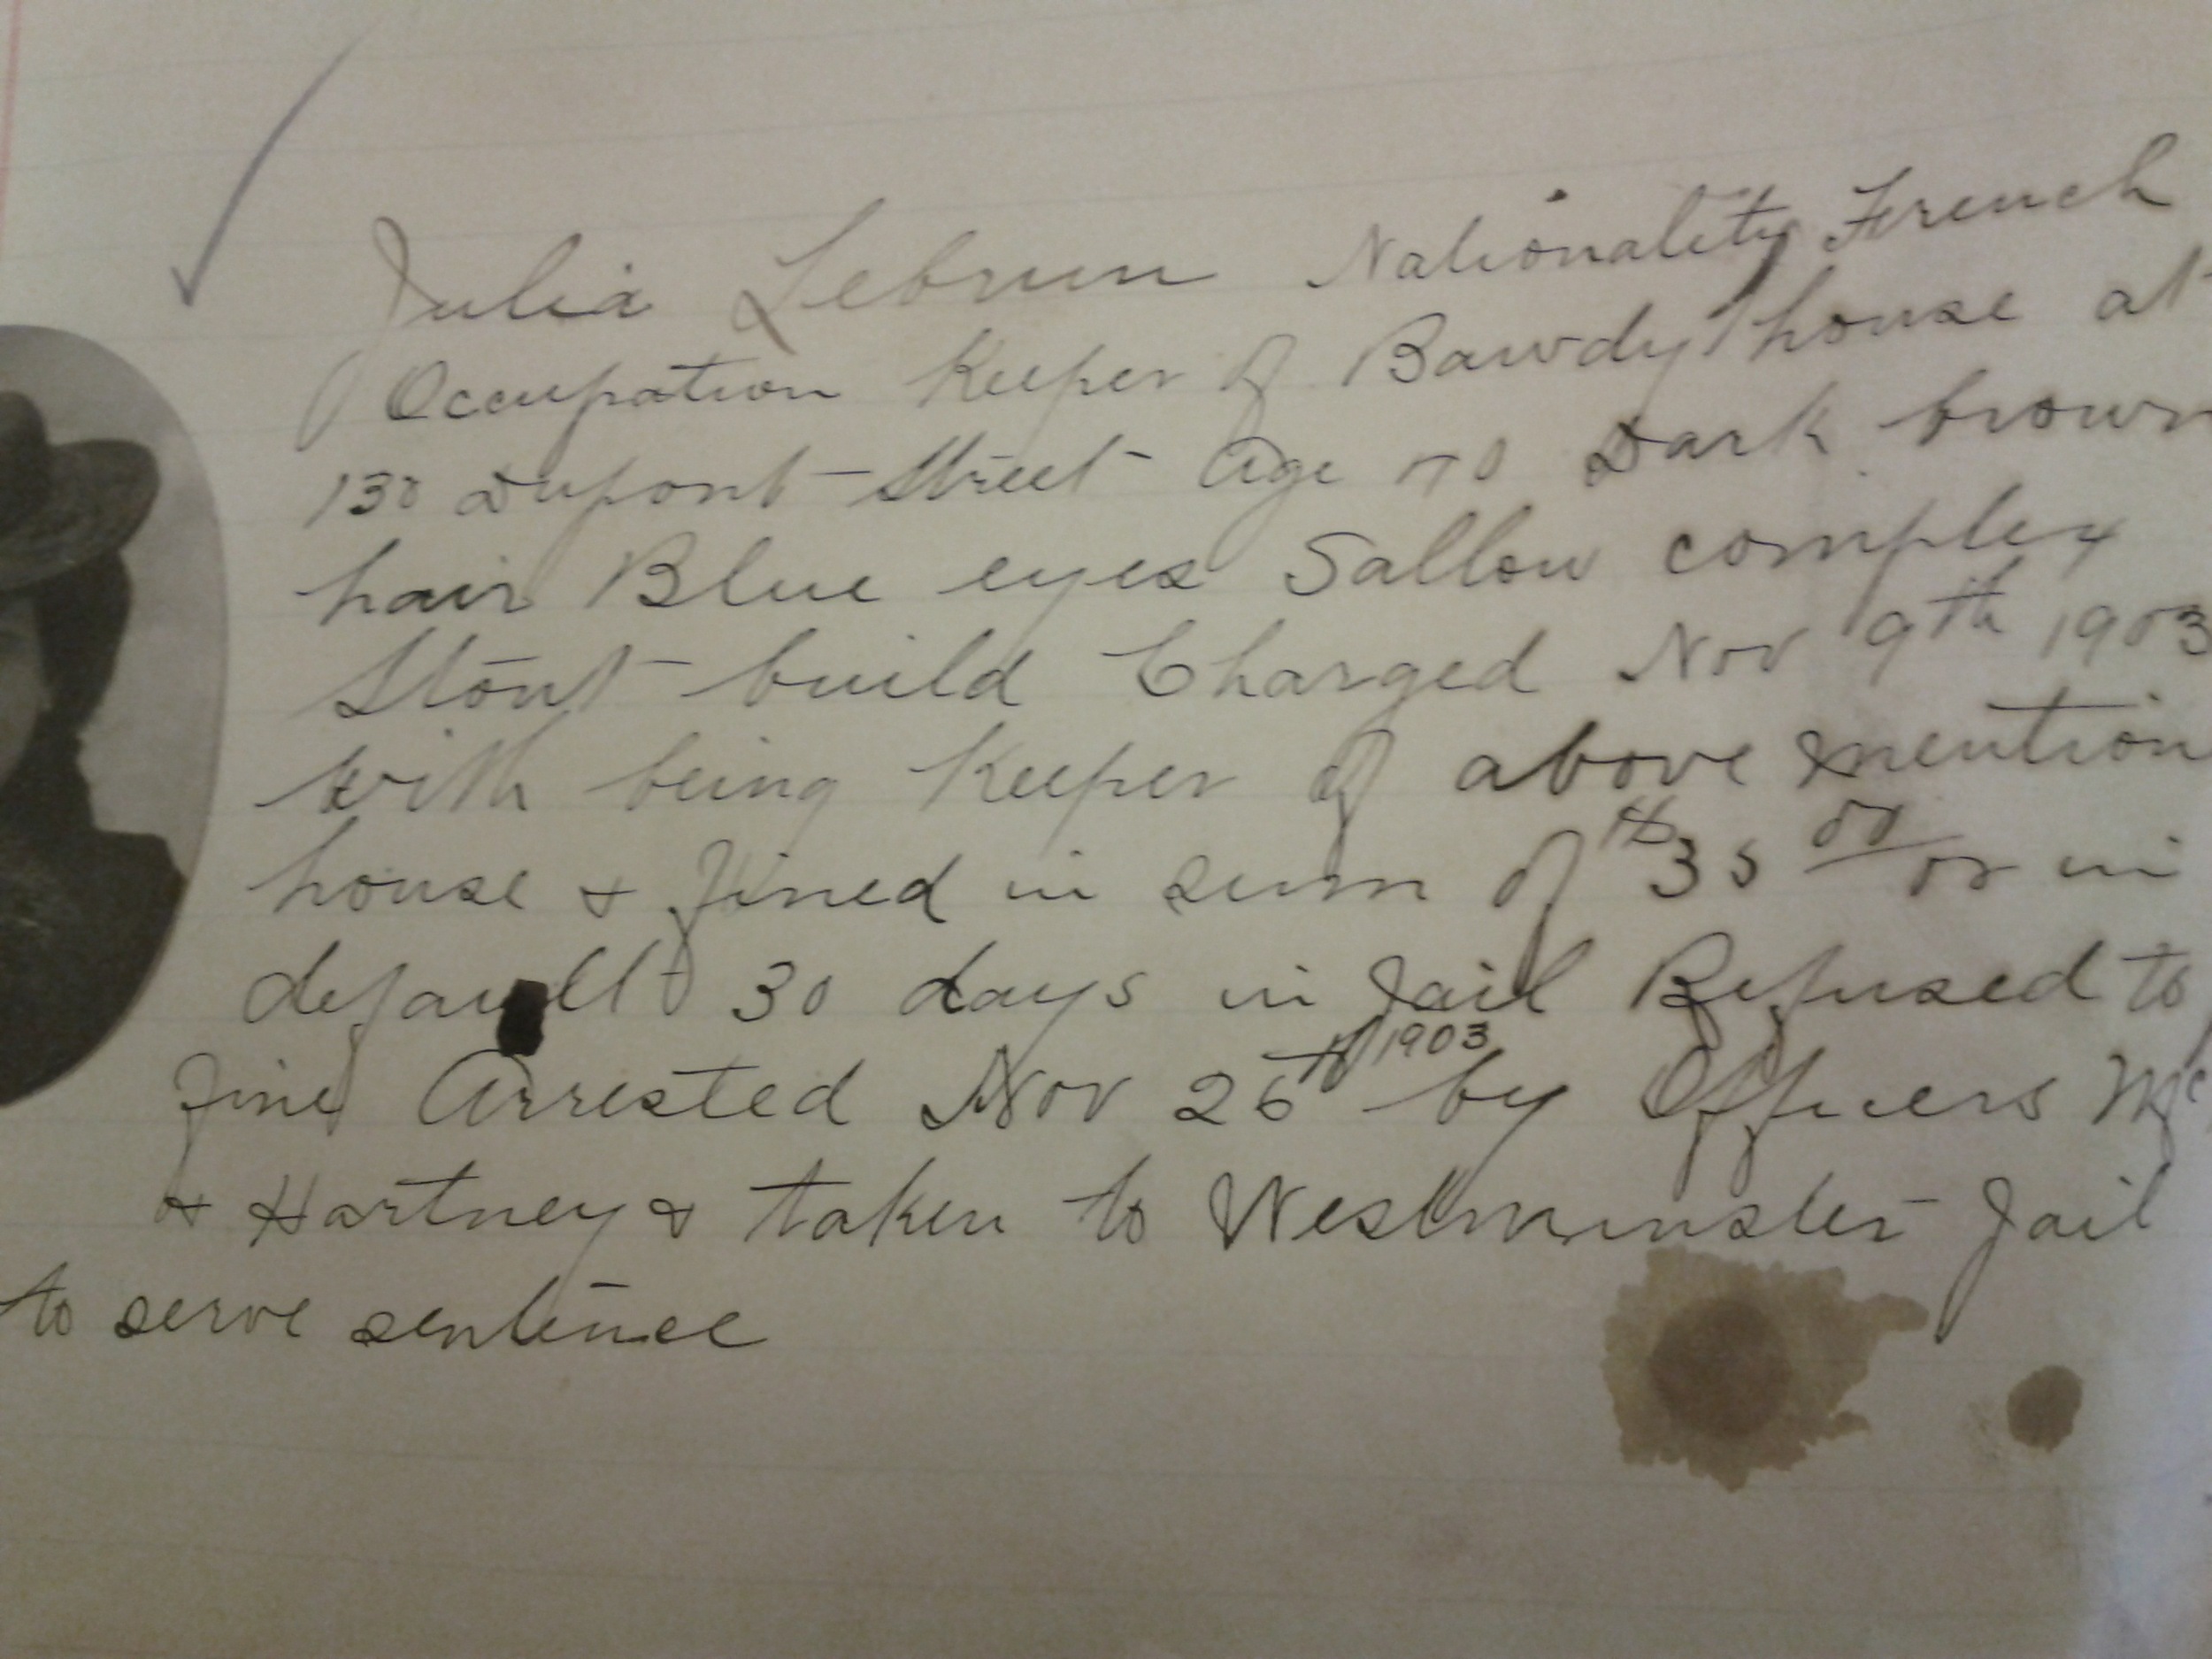 Julia Lebrun Nationality French
Occupation Keeper of Bawdy house at
130 Dupont Street Age 40 Dark brown
hair Blue eyes Sallow complex
Stout build Charged Nov 9th 1903
with being Keeper of above mention
house & fined in sum of $35 00 or in
default 30 days in Jail Refused to
fine Arrested Nov 26th 1903 by Officers Mc
& Hartney & taken to Westminster Jail
to serve sentence